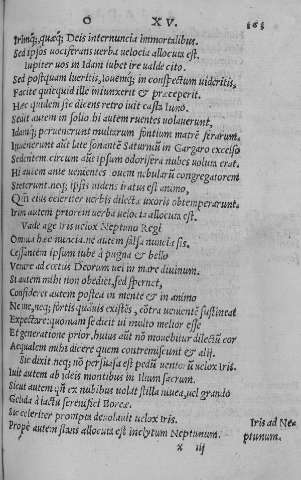 O XV.
Irimq;, quæq; Deis internuncia immortalibus.
Sed ipsos vociferans uerba uelocia allocuta est.
Iupiter uos in Idam iubet ire valde cito.
Sed postquam iueritis, Iouemq; in conspectum uideritis,
Facite quicquid ille iniunxerit & præceperit.
Hæc quidem sic dicens retro iuit casta Iuno.
Sedit autem in solio hi autem ruentes uolauerunt.
Idamq; peruenerunt multarum fontium matrē ferarum.
Inuenerunt aūt late sonantē Saturnū in Gargaro excelso
Sedentem circum aūt ipsum odorifera nubes uoluta erat.
Hi autem ante uenientes Iouem nubilarū congregatorem
Steterunt. neq; ipsis uidens iratus est animo,
Qm̄ eius celeriter uerbis dilectæ uxoris obtemperarunt.
Irim autem priorem uerba uelocia allocuta est.
Vade age iris uelox Neptuno Regi
Omnia hæc nuncia. ne autem falsa nuncia sis.
Cessantem ipsum iube à pugna & bello
Venire ad cœtus Deorum uel in mare diuinum.
Si autem mihi non obediet, sed spernet,
Consideret autem postea in mente & in animo
Ne me, neq; fortis quāuis existēs, cōtra uenientē sustineat
Expectare: quoniam se dicit ui multo melior esse
Et generatione prior, huius aūt nō mouebitur dilectū cor
Aequalem mihi dicere quem contremiscunt & alij.
Sic dixit neq; nō persuasa est pedū uentoū uelox Iris.
Iuit autem ab ideis montibus in Ilium sacrum.
Sicut autem qn̄ ex nubibus uolat stilla niuea, uel grando
Gelida à iactu serenifici Boreæ.
Sic celeriter prompta deuolauit uelox Iris.
Propè autem stans allocuta est inclytum Neptunum.
Iris ad Ne
ptunum.
x iij